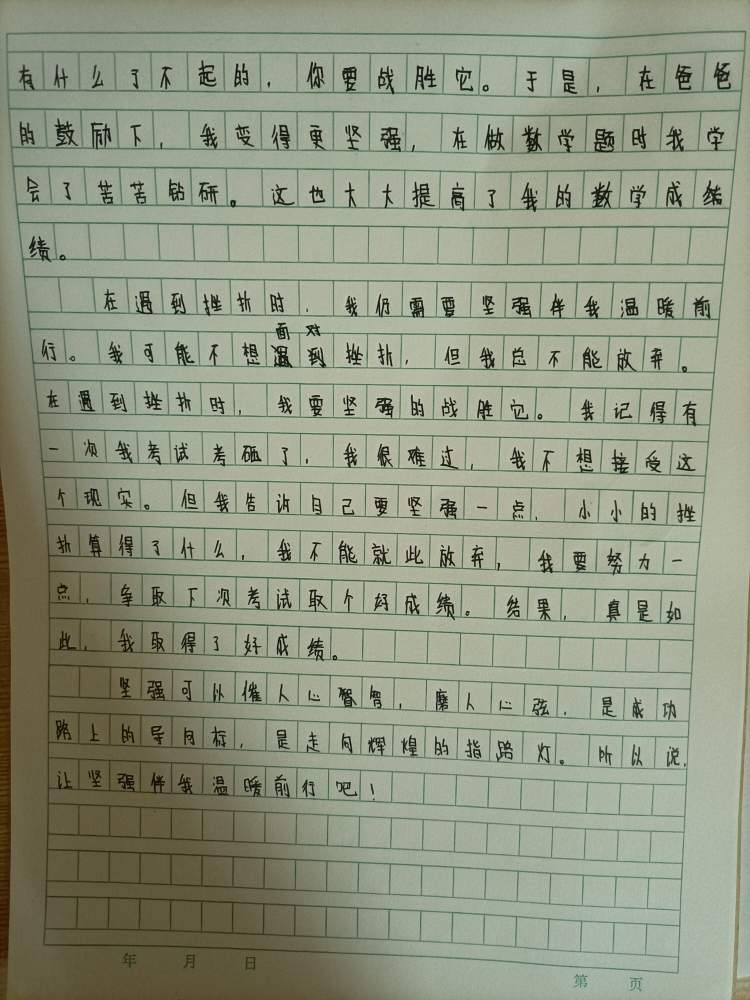 有什么了不起的，你要战胜它。于是，在爸爸
的鼓励下，我变得更坚强，在做数学题时我学
会了苦苦钻研。这也大大提高了我的数学成结
绩。
在遇到挫折时，我仍需要坚强伴我温暖前
面对
行。我可能不想遇到挫折，但我总不能放弃。
在遇到挫折时，我要坚强的战胜它。我记得有
一次我考试考砸了，我很难过，我不想接受这
个现实。但我告诉自己要坚强一点，小小的挫
折算得了什么，我不能就此放弃，我要努力一
点，争取下次考试取个好成绩。结果，真是如
此，我取得了好成绩。
坚强可以催人心，磨人心弦，是成功
路上的导向标，是走向辉煌的指路灯。所以说，
让坚强伴我温暖前行吧！
年 月 日
第 页